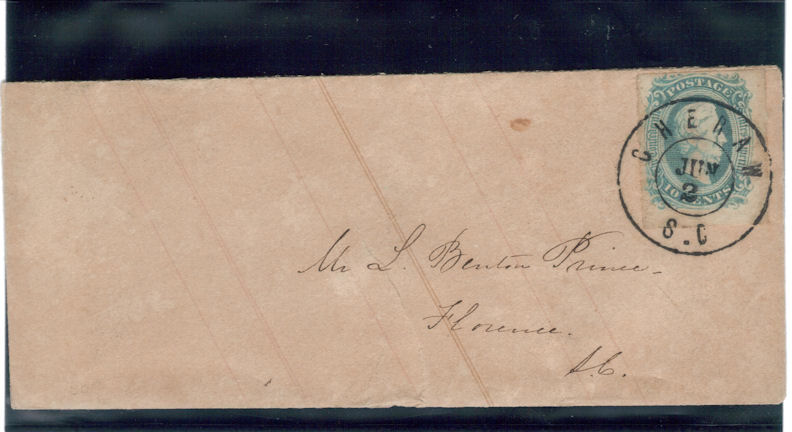 POSTAGE
10 CENTS
CHERAW
JUN
2
S.C
Mr L. Benton Prince
Florence.
S.C.